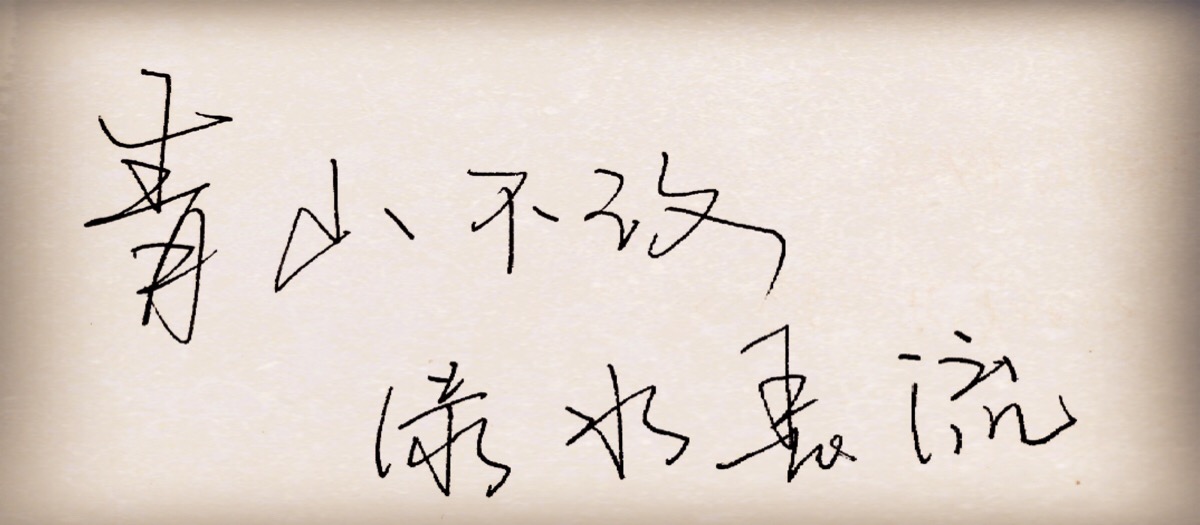 青山不改
绿水長流